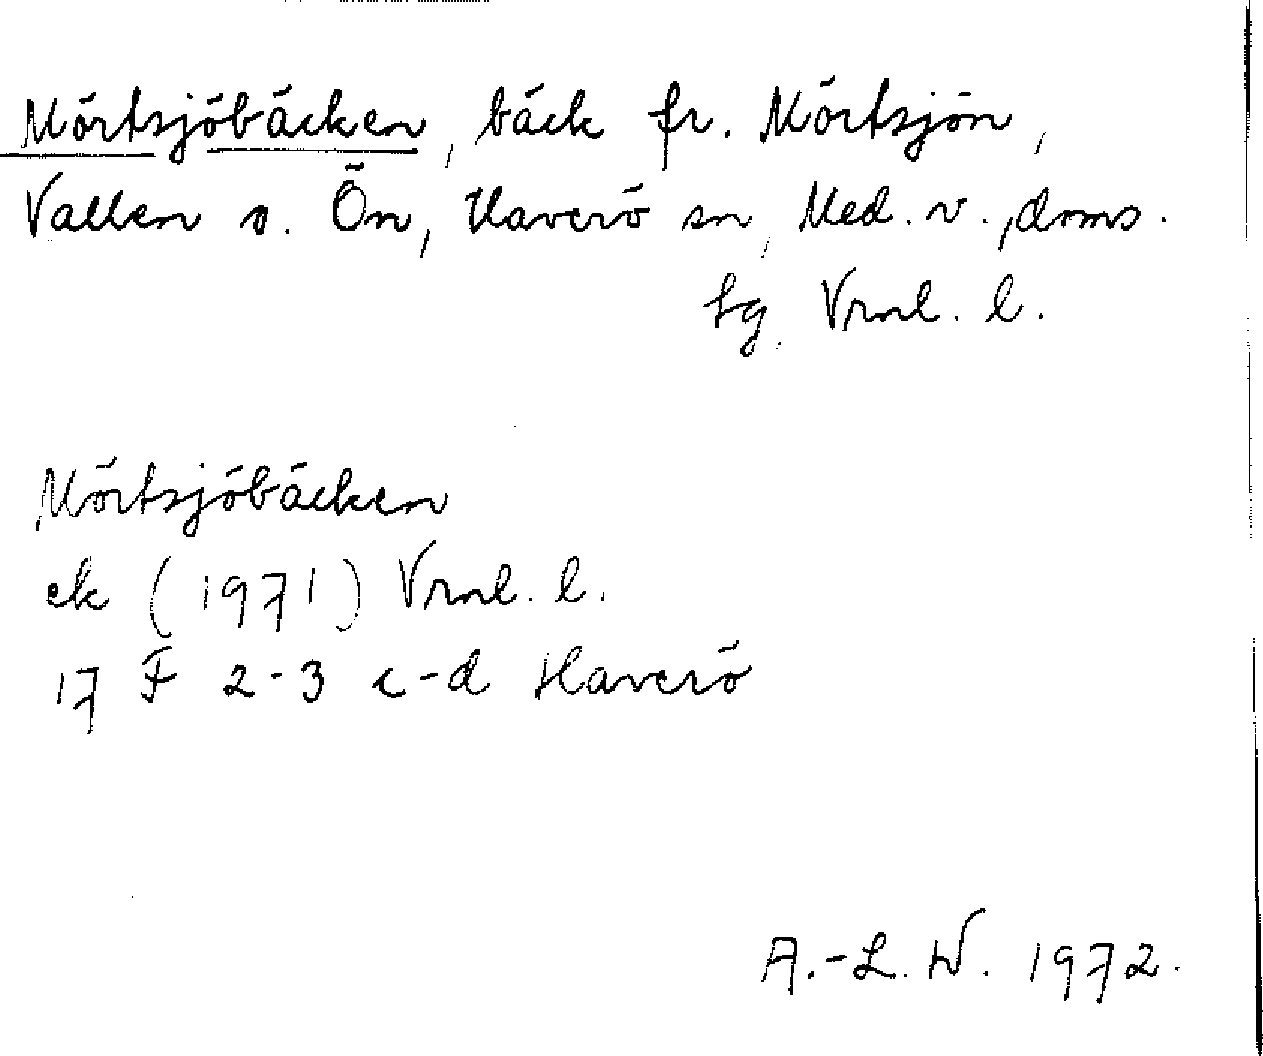 Mörtsjöbäcken, bäck fr. Mörtsjön,
Vallen o. Ön, Haverö sn, Med. v., doms.
sg. Vrnl. l.
Mörtsjöbäcken
ek (1971) Vrnl. l.
17 F 2-3 c-d Haverö
A.-L. W. 1972.